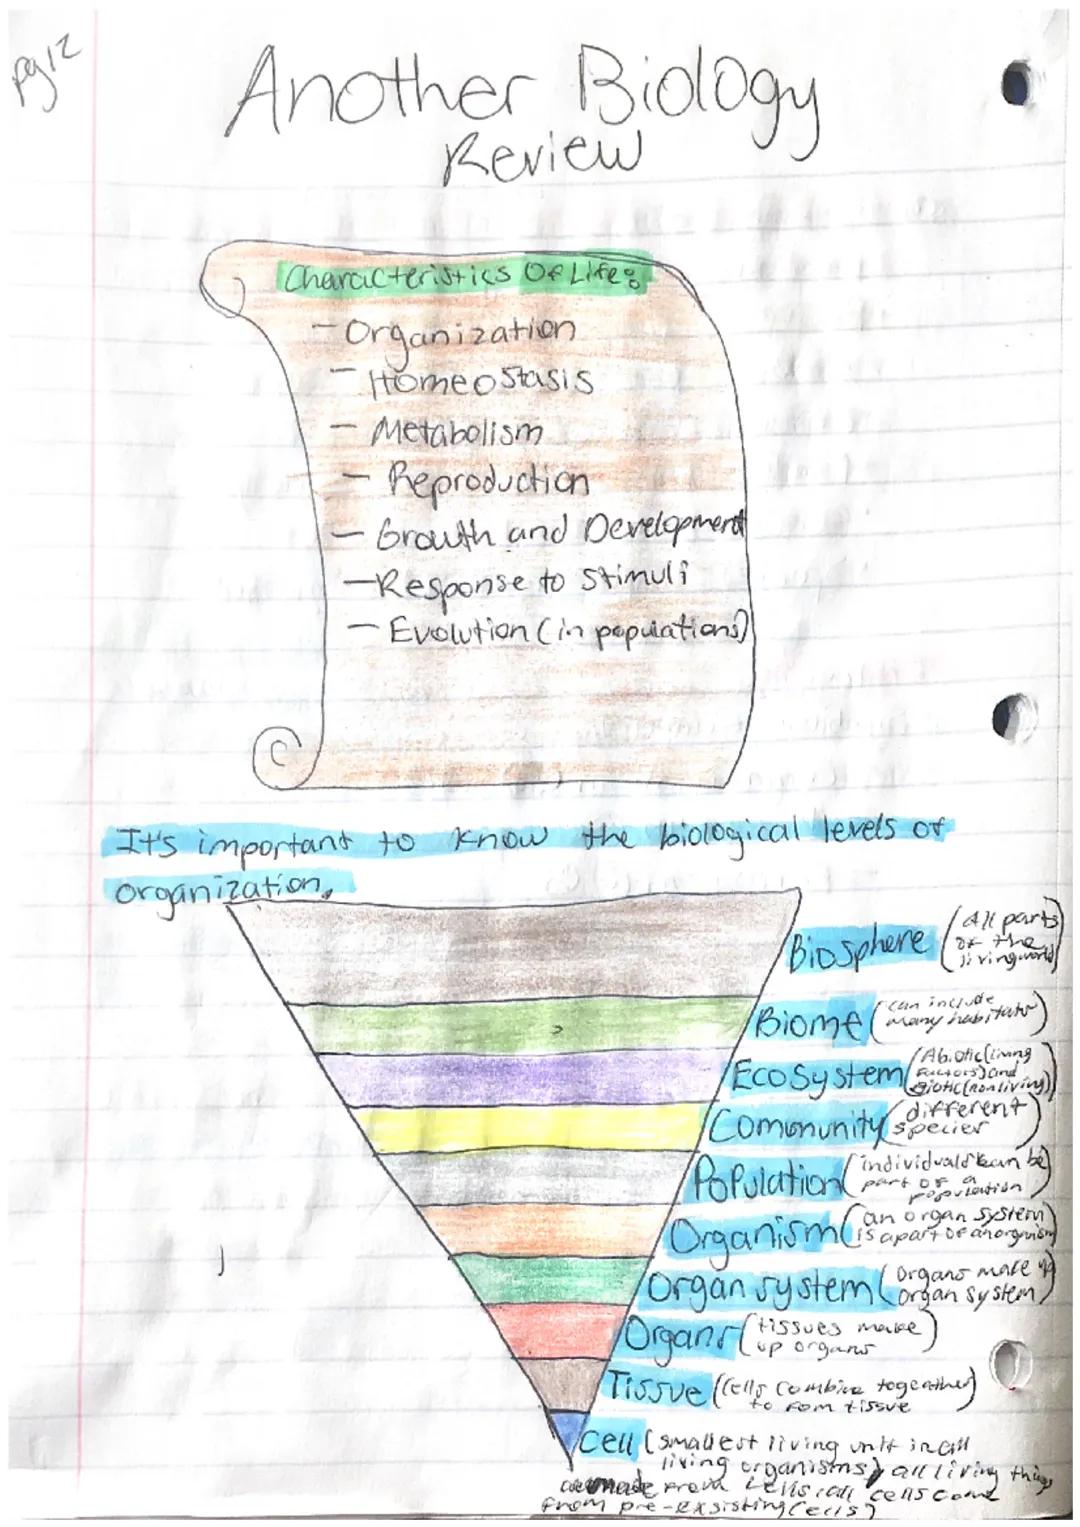 pg 12
Another Biology
Review
Characteristics Of Life:
- Organization
- Homeostasis
- Metabolism
- Reproduction
- Growth and Development
- Response to Stimuli
- Evolution (in populations)
It's important to know the biological levels of
organization.
Biosphere (All parts
of the
living world)
Biome (can include
many habitats)
Ecosystem (Abiotic (living
factors) and
Biotic (nonliving))
Community (different
species)
Population (individuals can be
part of a
population)
Organism (an organ system
is apart of an organism)
Organ system (organs make up
organ system)
Organs (tissues make
up organs)
Tissue (Cells combine togeather)
to form tissue
Cell (smallest living unit in all
living organisms) all living things
are made from cells, all cells come
from pre-exsisting cells)